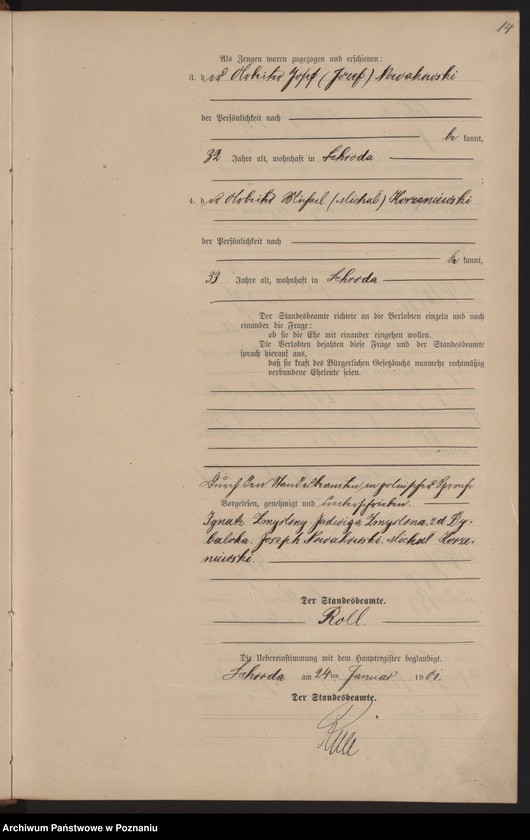 14
Als Zeugen waren zugezogen und erschienen:
3. der Arbeiter Josef (Jozef) Nowakowski
der Persönlichkeit nach
be kannt,
32 Jahre alt, wohnhaft in Schroda
4. der Arbeiter Michael (Michał) Korzeniewski
der Persönlichkeit nach
be kannt,
33 Jahre alt, wohnhaft in Schroda
Der Standesbeamte richtete an die Verlobten einzeln und nach
einander die Frage:
ob sie die Ehe mit einander eingehen wollen.
Die Verlobten bejahten diese Frage und der Standesbeamte
sprach hierauf aus,
daß sie kraft des Bürgerlichen Gesetzbuchs nunmehr rechtmäßig
verbundene Eheleute seien.
Durch den Standesbeamten in polnischer Sprache
Vorgelesen, genehmigt und unterschrieben.
Ignatz Zmyslony. Jadwiga Zmyslona z d Ry-
balska. Joseph Nowakowski. Michał Korze-
niewski.
Der Standesbeamte.
Roll.
Die Uebereinstimmung mit dem Hauptregister beglaubigt.
Schroda am 24ten Januar 1901.
Der Standesbeamte.
Roll
Archiwum Państwowe w Poznaniu